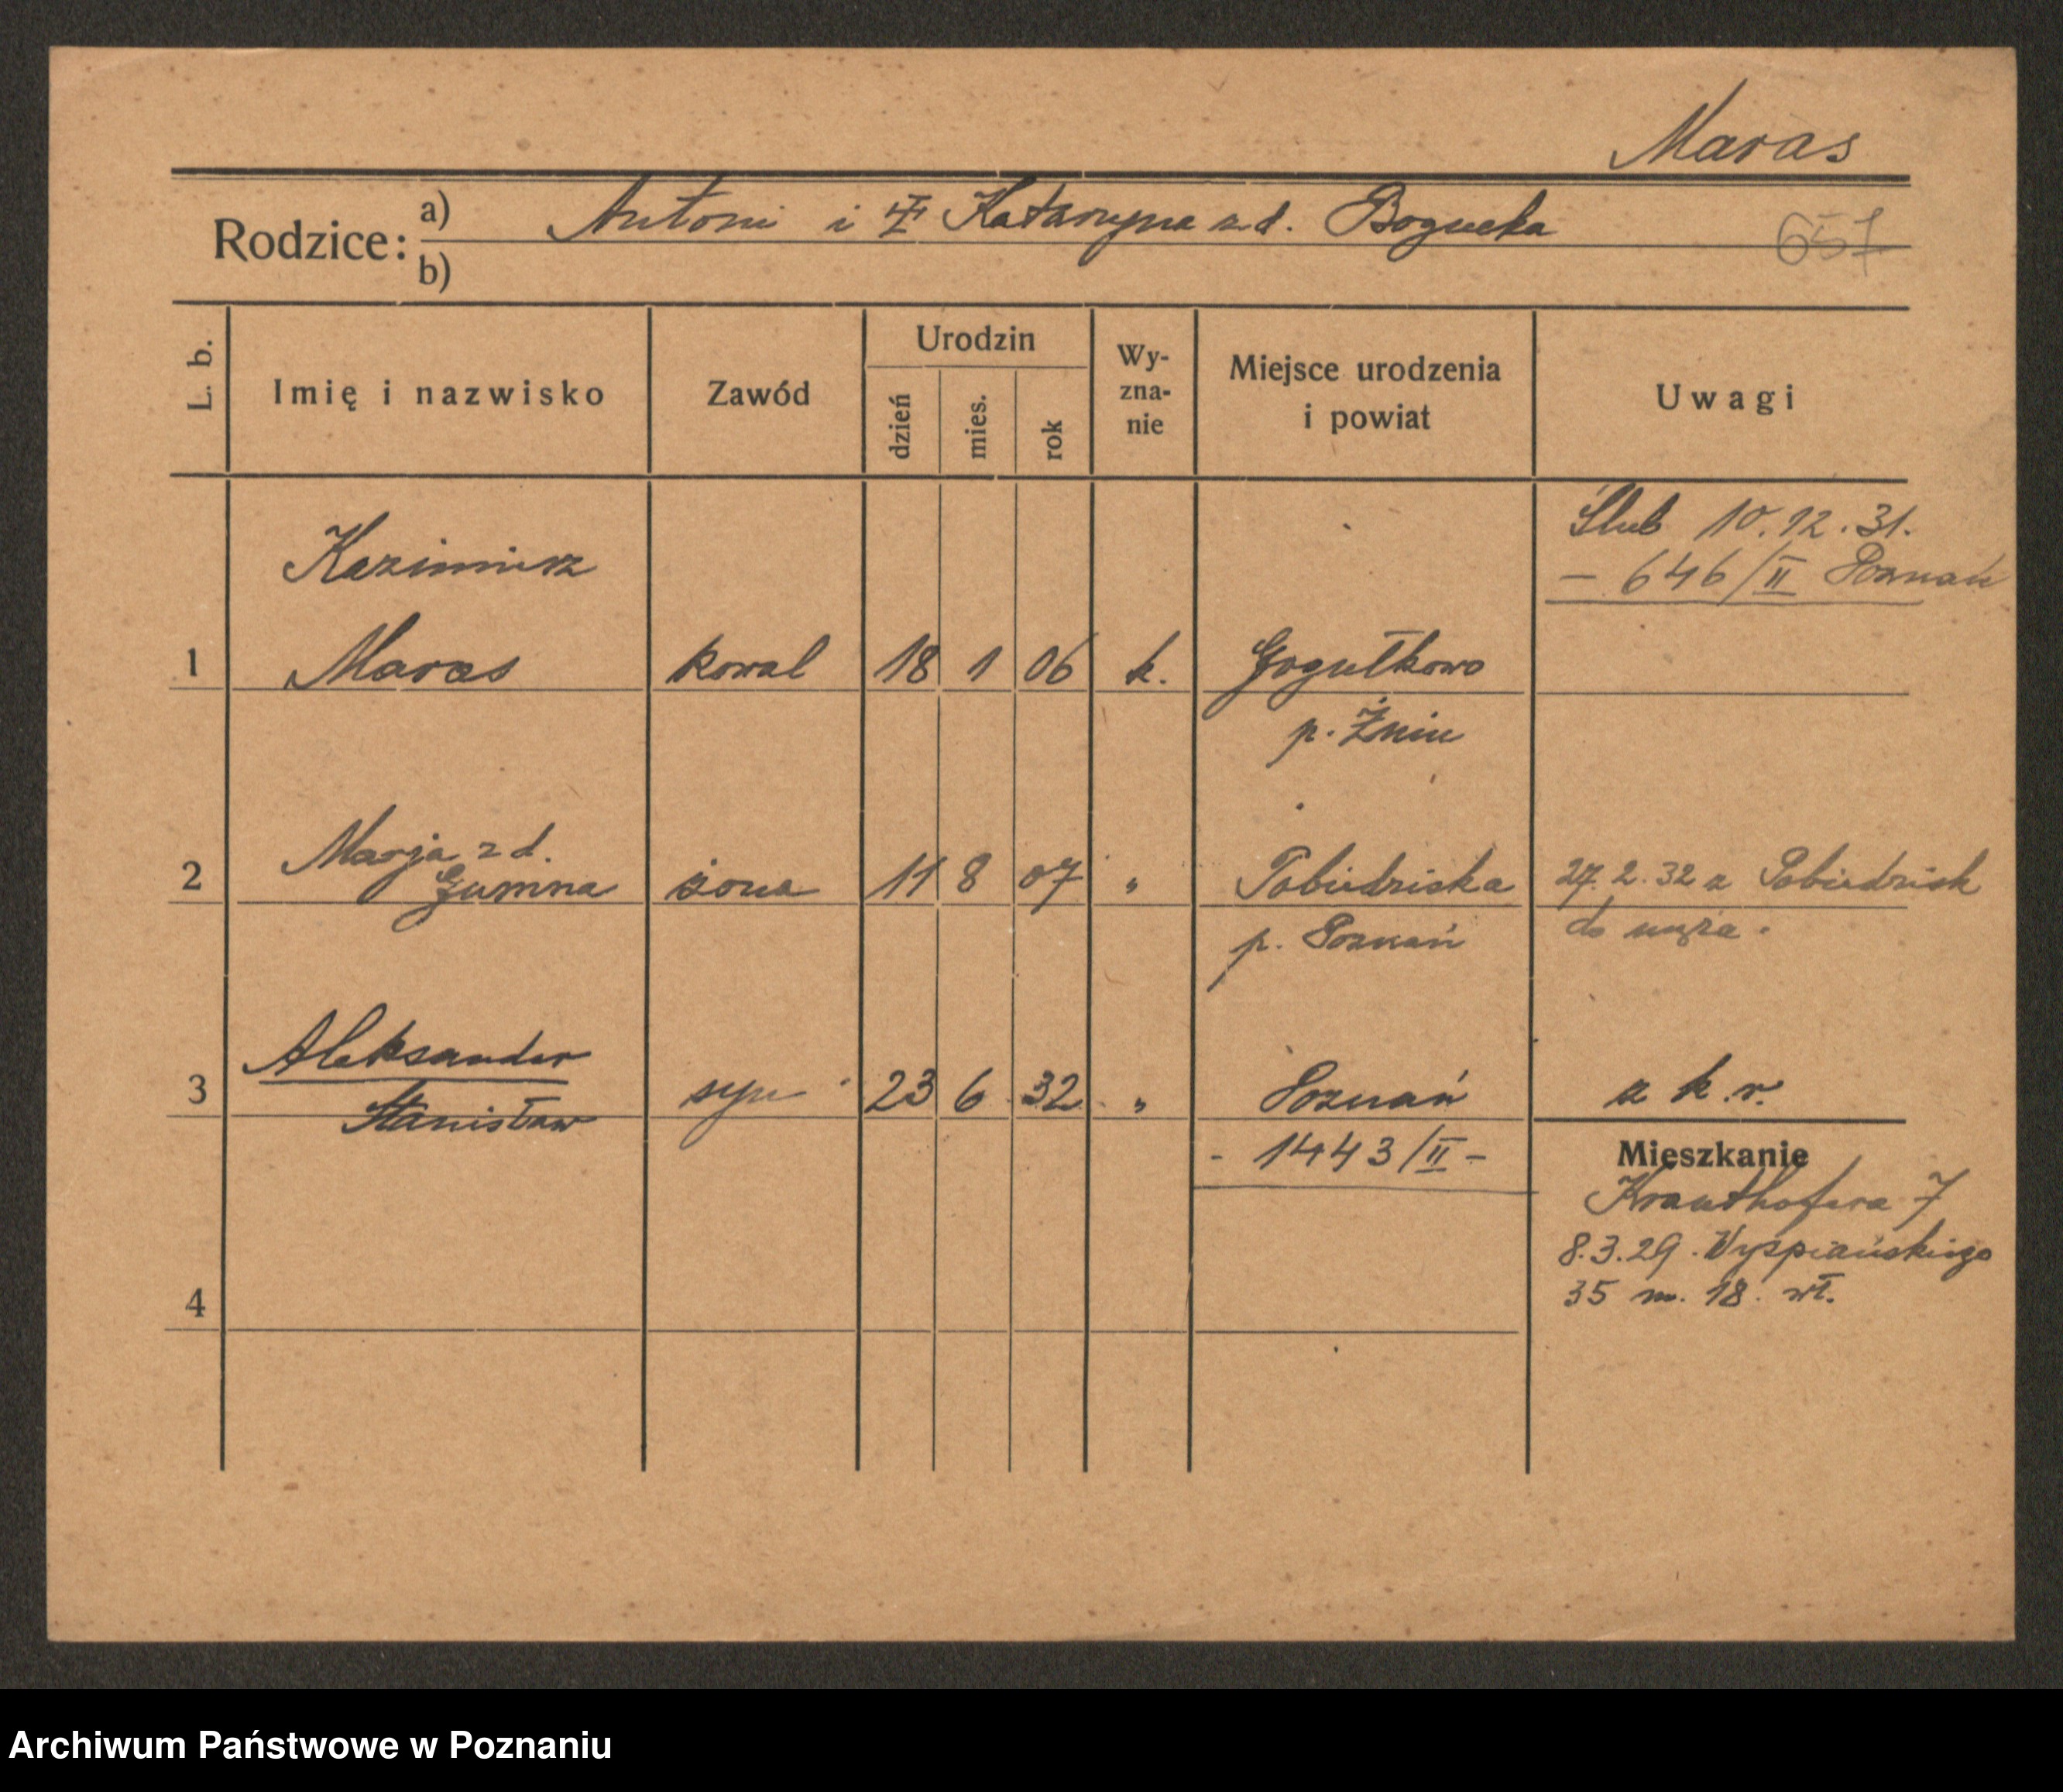 Maras
Rodzice: a) Antoni i Katarzyna z d. Bogucka
b)
657
L. b. Imię i nazwisko Zawód Urodzin dzień mies. rok Wy-zna-nie Miejsce urodzenia i powiat Uwagi
Ślub 10.12.31.
– 646/II Poznań
Kazimierz
1 Maras kowal 18 1 06 k. Gogułkowo
p. Żnin
Marja z d.
2 Gumna żona 11 8 07 " Pobiedziska 27.2.32 z Pobiedzisk
p. Poznań do męża.
Aleksander
3 Stanisław syn 23 6 32 " Poznań z k. r.
- 1443/II -
Mieszkanie
Krauthofera 7
8.3.29. Wyspiańskiego
35 m. 18. wł.
4
Archiwum Państwowe w Poznaniu